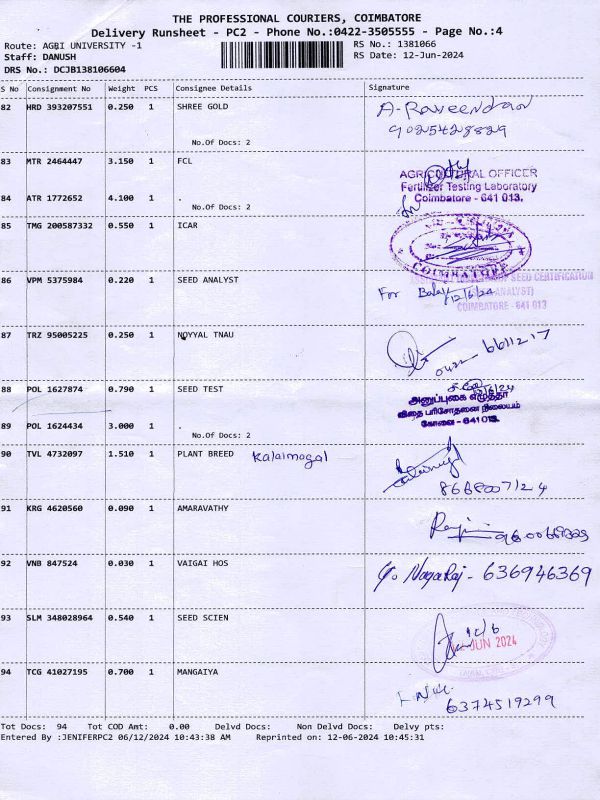 THE PROFESSIONAL COURIERS, COIMBATORE
Delivery Runsheet - PC2 - Phone No.:0422-3505555 - Page No.:4
Route: AGBI UNIVERSITY -1
RS No.: 1381066
Staff: DANUSH
RS Date: 12-Jun-2024
DRS No.: DCJB138106604
S No Consignment No Weight PCS Consignee Details Signature
82 HRD 393207551 0.250 1 SHREE GOLD A-Raveendran
9025428829
No.Of Docs: 2
83 MTR 2464447 3.150 1 FCL
AGRICULTURAL OFFICER
Fertilizer Testing Laboratory
Coimbatore - 641 013.
84 ATR 1772652 4.100 1 .
No.Of Docs: 2
85 TMG 200587332 0.550 1 ICAR
COIMBATORE
86 VPM 5375984 0.220 1 SEED ANALYST
SEED CERTIFICATION
For Balaji 12/6/24 ANALYST)
COIMBATORE - 641 013
87 TRZ 95005225 0.250 1 NOYYAL TNAU
0422-6611217
88 POL 1627874 0.790 1 SEED TEST
அனுப்புகை எழுத்தர்
விதை பரிசோதனை நிலையம்
கோவை - 641 013.
89 POL 1624434 3.000 1 .
No.Of Docs: 2
90 TVL 4732097 1.510 1 PLANT BREED Kalaimagal
8668007124
91 KRG 4620560 0.090 1 AMARAVATHY
92 VNB 847524 0.030 1 VAIGAI HOS NagaRaj - 636946369
93 SLM 348028964 0.540 1 SEED SCIEN
JUN 2024
94 TCG 41027195 0.700 1 MANGAIYA
6374519299
Tot Docs: 94 Tot COD Amt: 0.00 Delvd Docs: Non Delvd Docs: Delvy pts:
Entered By :JENIFERPC2 06/12/2024 10:43:38 AM Reprinted on: 12-06-2024 10:45:31